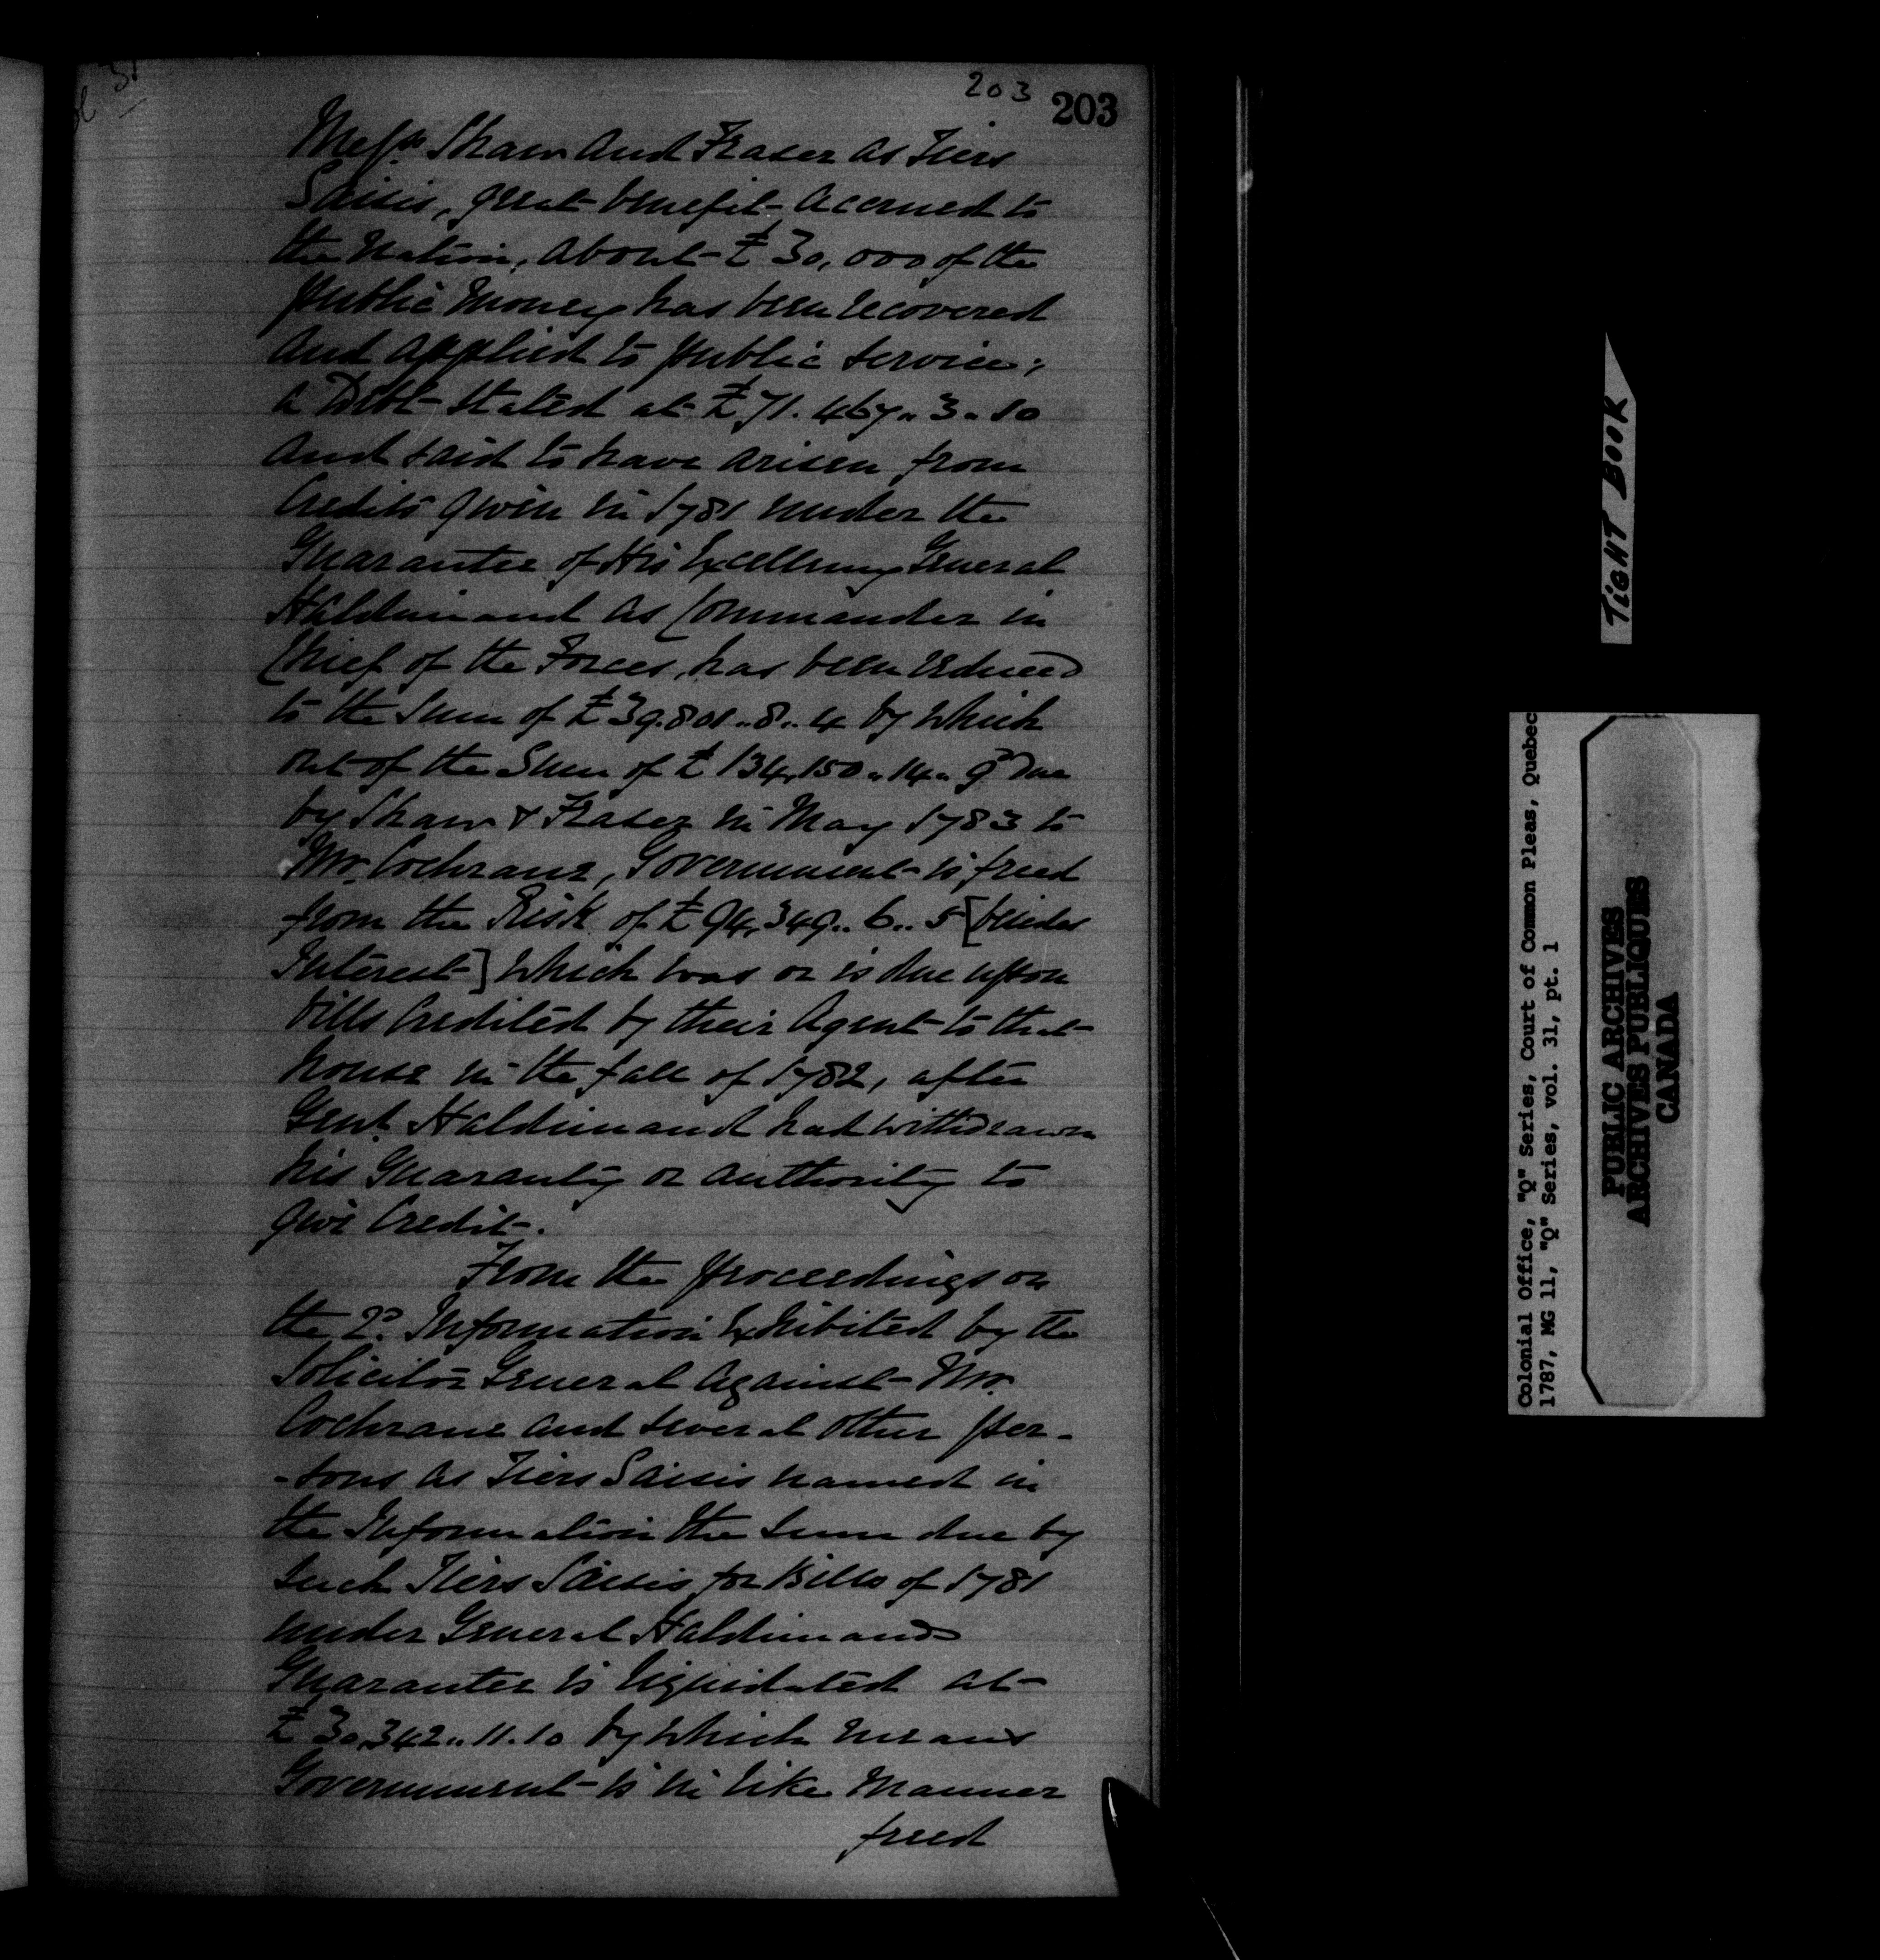 203 203
Mess.rs Shaw and Fraser as Tiers
Saisis, great benefit accrued to
the Nation, about £30,000 of the
public Money has been recovered
and applied to public service;
a Debt stated at £71.467..3..10
and said to have arisen from
Credits given in 1781 under the
Guarantee of His Excellency General
Haldimand as Commander in
Chief of the Forces, has been reduced
to the Sum of £39.801..8..4 by which
out of the Sum of £134,150..14..9 due
by Shaw & Fraser in May 1783 to
Mr. Cochrane, Government is freed
from the Risk of £94,349..6..5 [besides
Interest] which was or is due upon
bills Credited by their Agent to that
house in the fall of 1782, after
Genl. Haldimand had withdrawn
his Guaranty or authority to
give Credit.
From the proceedings on
the 2d. Information Exhibited by the
Solicitor General against Mr.
Cochrane and several other per-
-sons as Tiers Saisis named in
the Information the sum due by
such Tiers Saisis for Bills of 1781
under General Haldimands
Guarantee is liquidated at
£30,342..11.10 by which means
Government is in like Manner
freed
TIGHT BOOK
Colonial Office, "Q" Series, Court of Common Pleas, Quebec
1787, MG 11, "Q" Series, vol. 31, pt. 1
PUBLIC ARCHIVES
ARCHIVES PUBLIQUES
CANADA